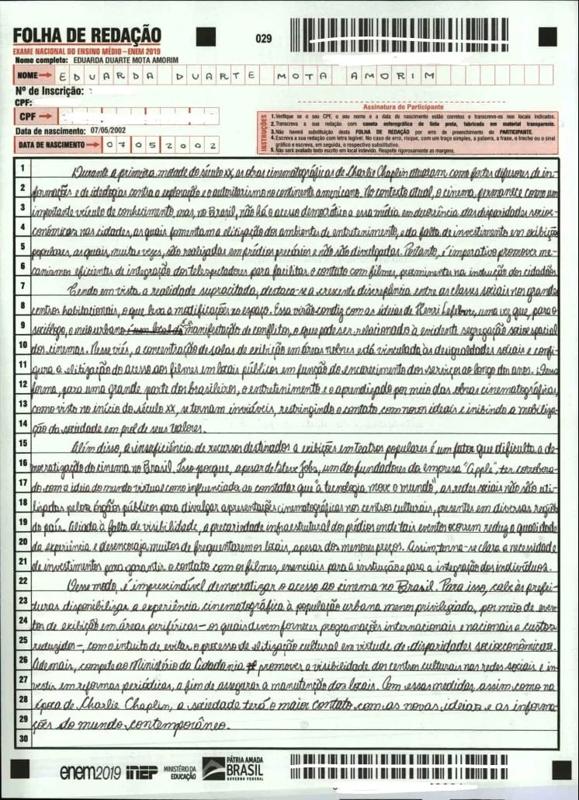 FOLHA DE REDAÇÃO
EXAME NACIONAL DO ENSINO MÉDIO - ENEM 2019
029
Nome completo: EDUARDA DUARTE MOTA AMORIM
NOME EDUARDA DUARTE MOTA AMORIM
Nº de Inscrição:
CPF:
CPF
Data de nascimento: 07/05/2002
DATA DE NASCIMENTO 07052002
Assinatura do Participante
INSTRUÇÕES
1. Verifique se o seu CPF, o seu nome e a data de nascimento estão corretos e transcreva-os nos locais indicados.
2. Transcreva a sua redação com caneta esferográfica de tinta preta, fabricada em material transparente.
3. Não haverá substituição desta FOLHA DE REDAÇÃO por erro de preenchimento do PARTICIPANTE.
4. Escreva a sua redação com letra legível. No caso de erro, risque, com um traço simples, a palavra, a frase, o trecho ou o sinal
gráfico e escreva, em seguida, o respectivo substitutivo.
5. Não será avaliado texto escrito em local indevido. Respeite rigorosamente as margens.
1 Durante a primeira metade do século XX, as obras cinematográficas de Charlie Chaplin atuaram como fortes difusores de in-
2 formações e de ideologias contra a exploração e o autoritarismo no continente americano. No contexto atual, o cinema permanece como um
3 importante veículo de conhecimento, mas, no Brasil, não há o acesso democrático a essa mídia em decorrência das disparidades socioe-
4 conômicas nas cidades, as quais fomentam a elitização dos ambientes de entretenimento, e da falta de investimento em exibições
5 populares, as quais, muitas vezes, são realizadas em prédios precários e não são divulgadas. Portanto, é imperativo promover me-
6 canismos eficientes de integração dos telespectadores para facilitar o contato com filmes, proeminentes na instrução dos cidadãos.
7 Tendo em vista a realidade supracitada, destaca-se a crescente discrepância entre as classes sociais em grandes
8 centros habitacionais, o que leva a modificações no espaço. Essa visão condiz com as ideias de Henri Lefebvre, uma vez que, para o
9 sociólogo, o meio urbano é a manifestação de conflitos, o que pode ser relacionado à evidente segregação socioespacial
10 dos cinemas. Nesse viés, a concentração de salas de exibição em áreas nobres está vinculada às desigualdades sociais e confi-
11 gura a elitização do acesso aos filmes em locais públicos em função do encarecimento dos serviços ao longo dos anos. Dessa
12 forma, para uma grande parte dos brasileiros, o entretenimento e o aprendizado por meio das obras cinematográficas,
13 como visto no início do século XX, se tornam inviáveis, restringindo o contato com novos ideais e inibindo a mobiliza-
14 ção da sociedade em prol de seus valores.
15 Além disso, a insuficiência de recursos destinados a exibições em teatros populares é um fator que dificulta a de-
16 mocratização do cinema no Brasil. Isso porque, apesar de Steve Jobs, um dos fundadores da empresa "Apple", ter corrobora-
17 do com a ideia do mundo virtual como influenciador ao constatar que "a tecnologia move o mundo", as redes sociais não são uti-
18 lizadas pelos órgãos públicos para divulgar apresentações cinematográficas nos centros culturais, presentes em diversas regiões
19 do país. Aliada à falta de visibilidade, a precariedade infraestrutural dos prédios onde tais eventos ocorrem reduz a qualidade
20 da experiência e desencoraja muitos de frequentarem os locais, apesar dos menores preços. Assim, torna-se clara a necessidade
21 de investimentos para garantir o contato com os filmes, essenciais para a instrução e para a integração dos indivíduos.
22 Desse modo, é imprescindível democratizar o acesso ao cinema no Brasil. Para isso, cabe às prefei-
23 turas disponibilizar a experiência cinematográfica à população urbana menos privilegiada, por meio de even-
24 tos de exibição em áreas periféricas - os quais devem fornecer programações internacionais e nacionais a custos
25 reduzidos -, com o intuito de evitar o processo de elitização cultural em virtude de disparidades socioeconômicas.
26 Ademais, compete ao Ministério da Cidadania promover a visibilidade dos centros culturais nas redes sociais e in-
27 vestir em reformas periódicas, a fim de assegurar a manutenção dos locais. Com essas medidas, assim como na
28 época de Charlie Chaplin, a sociedade terá o maior contato com as novas ideias e as informa-
29 ções do mundo contemporâneo.
30
enem2019 inep MINISTÉRIO DA
EDUCAÇÃO PÁTRIA AMADA
BRASIL
GOVERNO FEDERAL